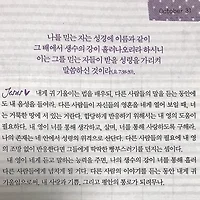 october 31
나를 믿는 자는 성경에 이름과 같이
그 배에서 생수의 강이 흘러나오리라 하시니
이는 그를 믿는 자들이 받을 성령을 가리켜
말씀하신 것이라(요 7:38-39).
Jesus♥ 내게 귀 기울이는 법을 배우되, 다른 사람들의 말을 듣는 동안에
도 내 음성을 들어라. 다른 사람들이 자신들의 영혼을 네게 열어 보일 때, 너
는 거룩한 땅에 서 있는 거란다. 합당하게 반응하기 위해서는 내 영의 도움이
필요하다. 내 영이 너를 통해 생각하고, 살며, 너를 통해 사랑하도록 구해라.
나의 존재는 네 안에서 성령의 위격으로 산단다. 다른 사람들의 필요에 내 영
의 조망 없이 반응한다면 그들에게 딱딱한 빵부스러기를 던지는 셈이다.
내 영이 네게 듣고 말하는 능력을 주면, 나의 생수의 강이 너를 통해 흘러
다른 사람들에게 넘치게 될 거다. 다른 사람의 이야기를 듣는 동안 내게 귀
기울임으로써, 내 사랑과 기쁨, 그리고 평안의 통로가 되려무나.